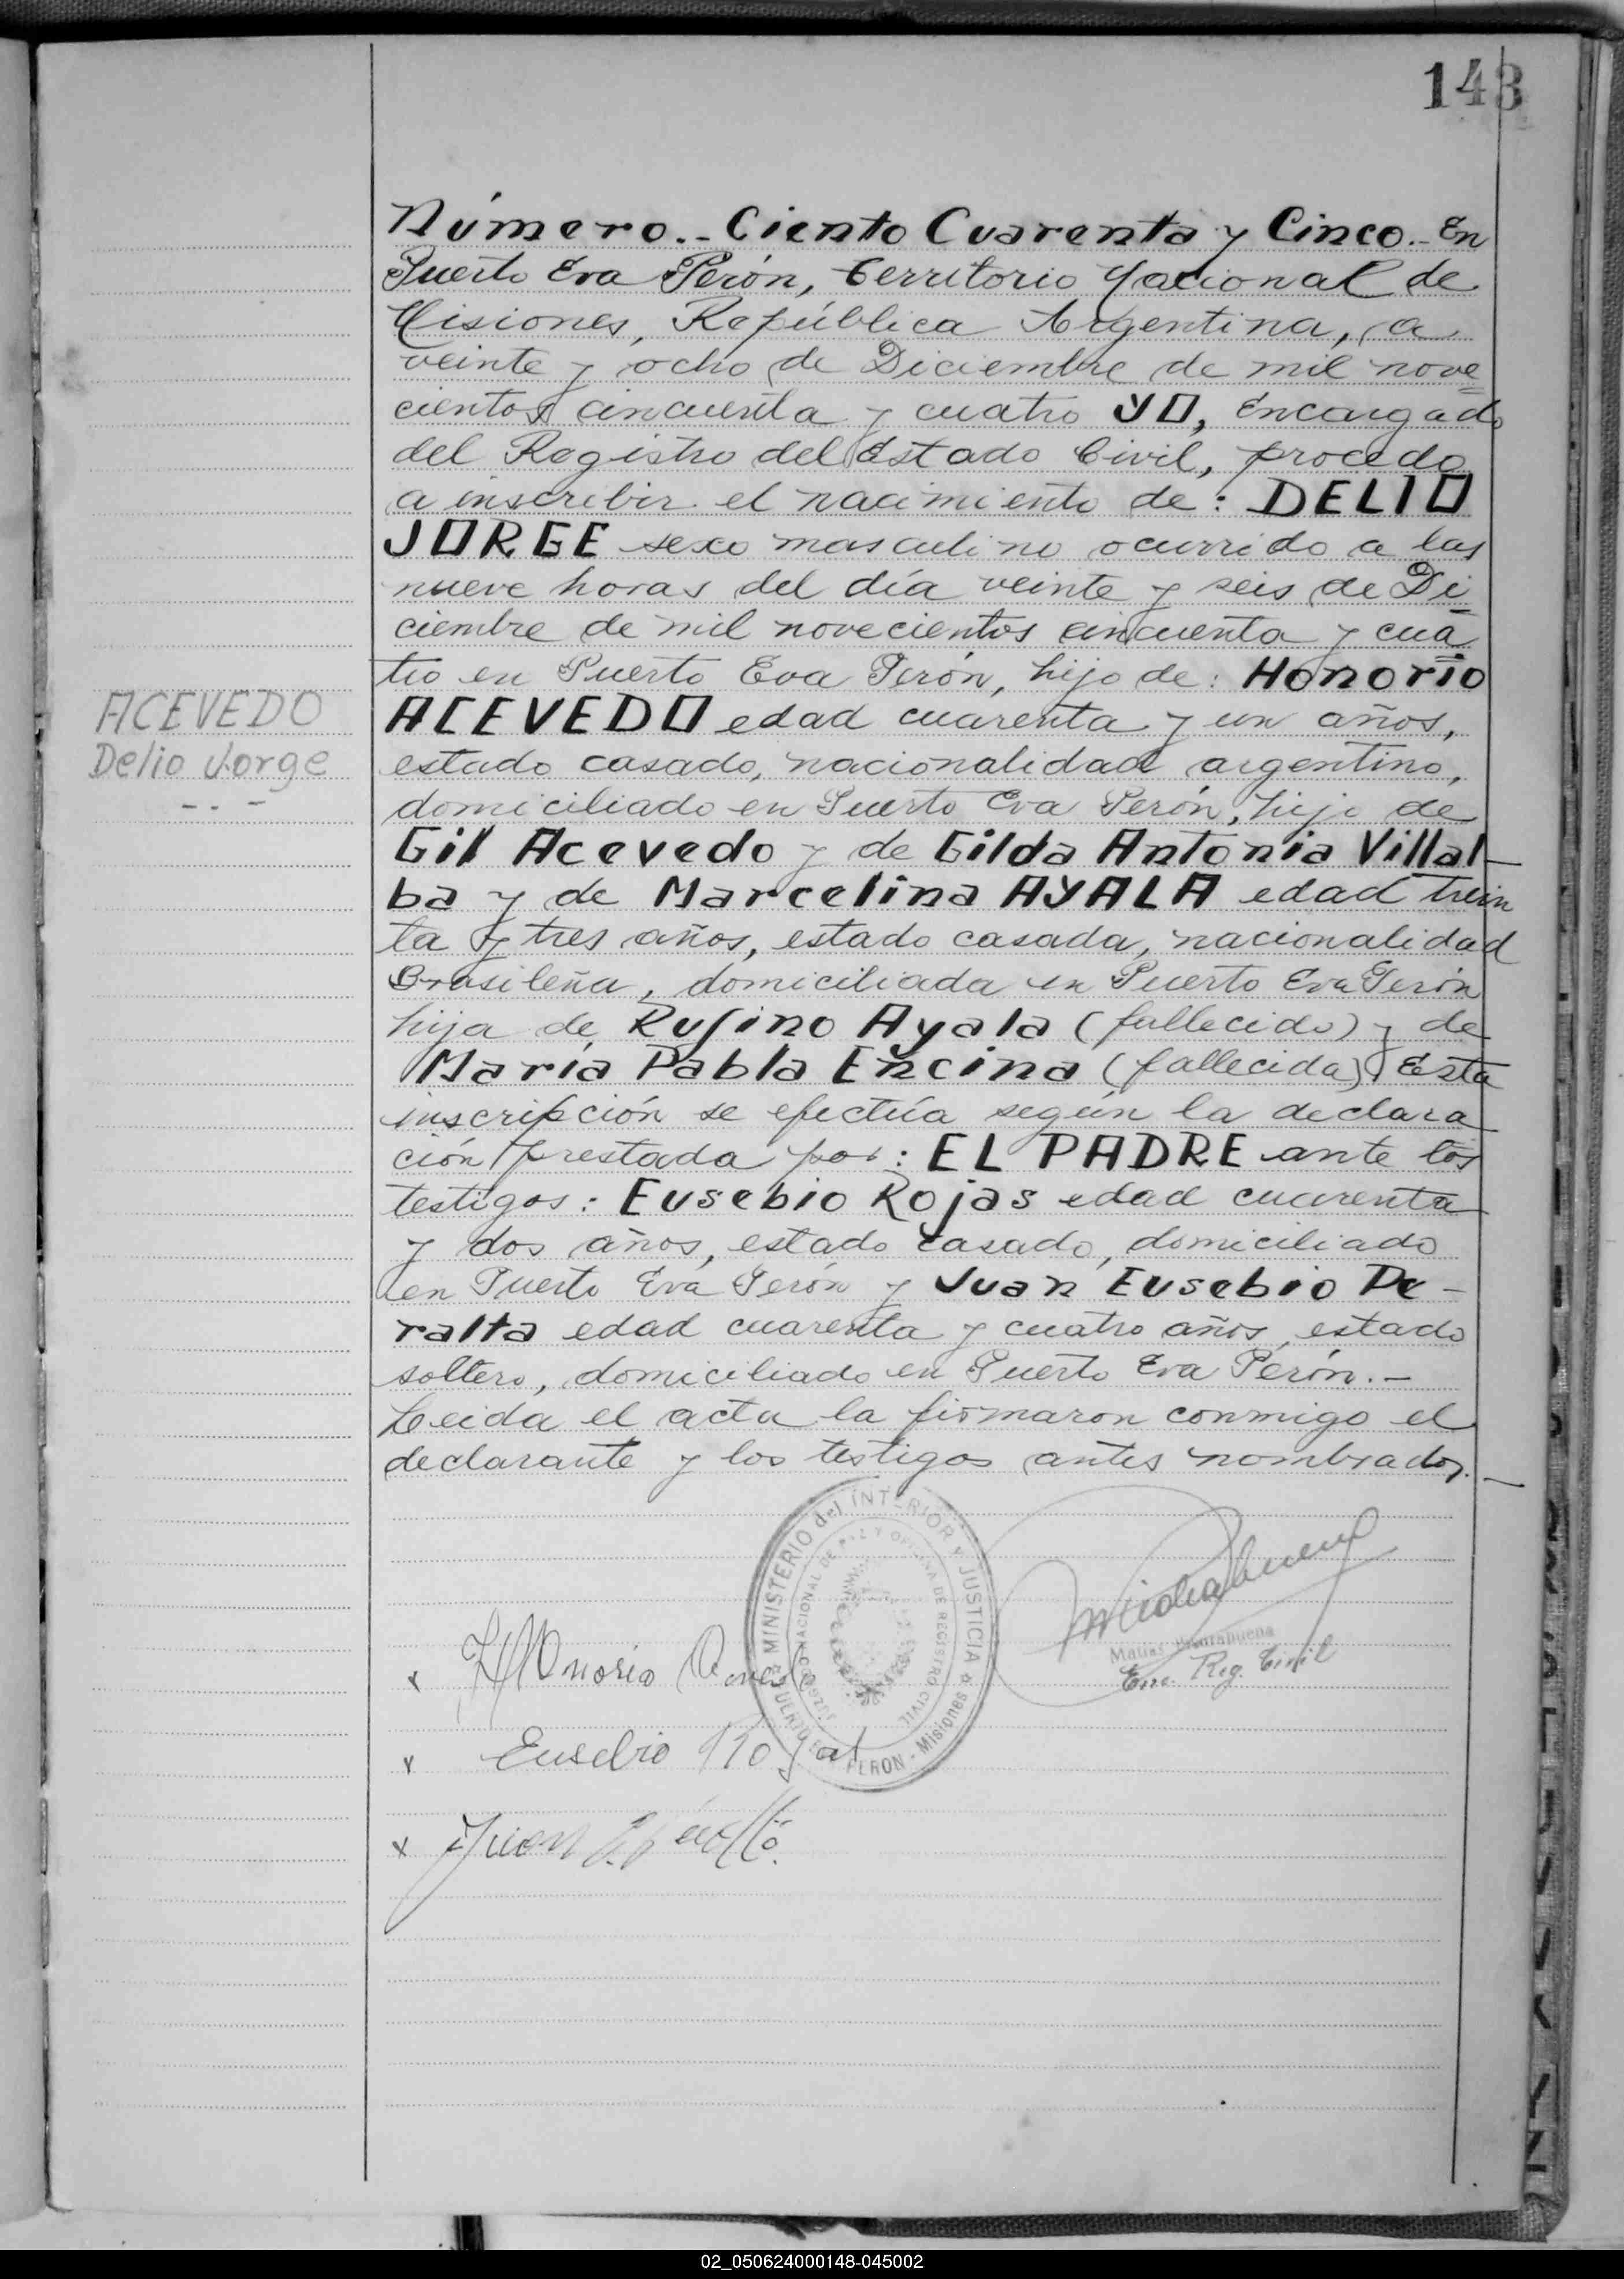 143
Número.- Ciento Cuarenta y Cinco.- En
Puerto Eva Perón, Territorio Nacional de
Misiones, República Argentina, a
veinte y ocho de Diciembre de mil nove
cientos cincuenta y cuatro YO, Encargado
del Registro del Estado Civil, procedo
a inscribir el nacimiento de: DELIO
JORGE sexo masculino ocurrido a las
nueve horas del día veinte y seis de Di
ciembre de mil novecientos cincuenta y cua
tro en Puerto Eva Perón, hijo de: Honorio
ACEVEDO edad cuarenta y un años,
ACEVEDO
Delio Jorge
estado casado, nacionalidad argentino,
domiciliado en Puerto Eva Perón, hijo de
Gil Acevedo y de Gilda Antonia Villal-
ba y de Marcelina AYALA edad trein
ta y tres años, estado casada, nacionalidad
Brasileña, domiciliada en Puerto Eva Perón
hija de Rufino Ayala (fallecido) y de
María Pabla Encina (fallecida) Esta
inscripción se efectúa según la declara
ción prestada por: EL PADRE ante los
testigos: Eusebio Rojas edad cuarenta
y dos años, estado casado, domiciliado
en Puerto Eva Perón y Juan Eusebio Pe-
ralta edad cuarenta y cuatro años, estado
soltero, domiciliado en Puerto Eva Perón.-
Leida el acta la firmaron conmigo el
declarante y los testigos antes nombrados.-
MINISTERIO del INTERIOR Y JUSTICIA
JUZGADO NACIONAL DE PAZ Y OFICINA DE REGISTRO CIVIL
PUERTO EVA PERON - Misiones
Matias
Enc. Reg. Civil
x Honorio
x Eusebio Rojas
x Juan
02_050624000148-045002